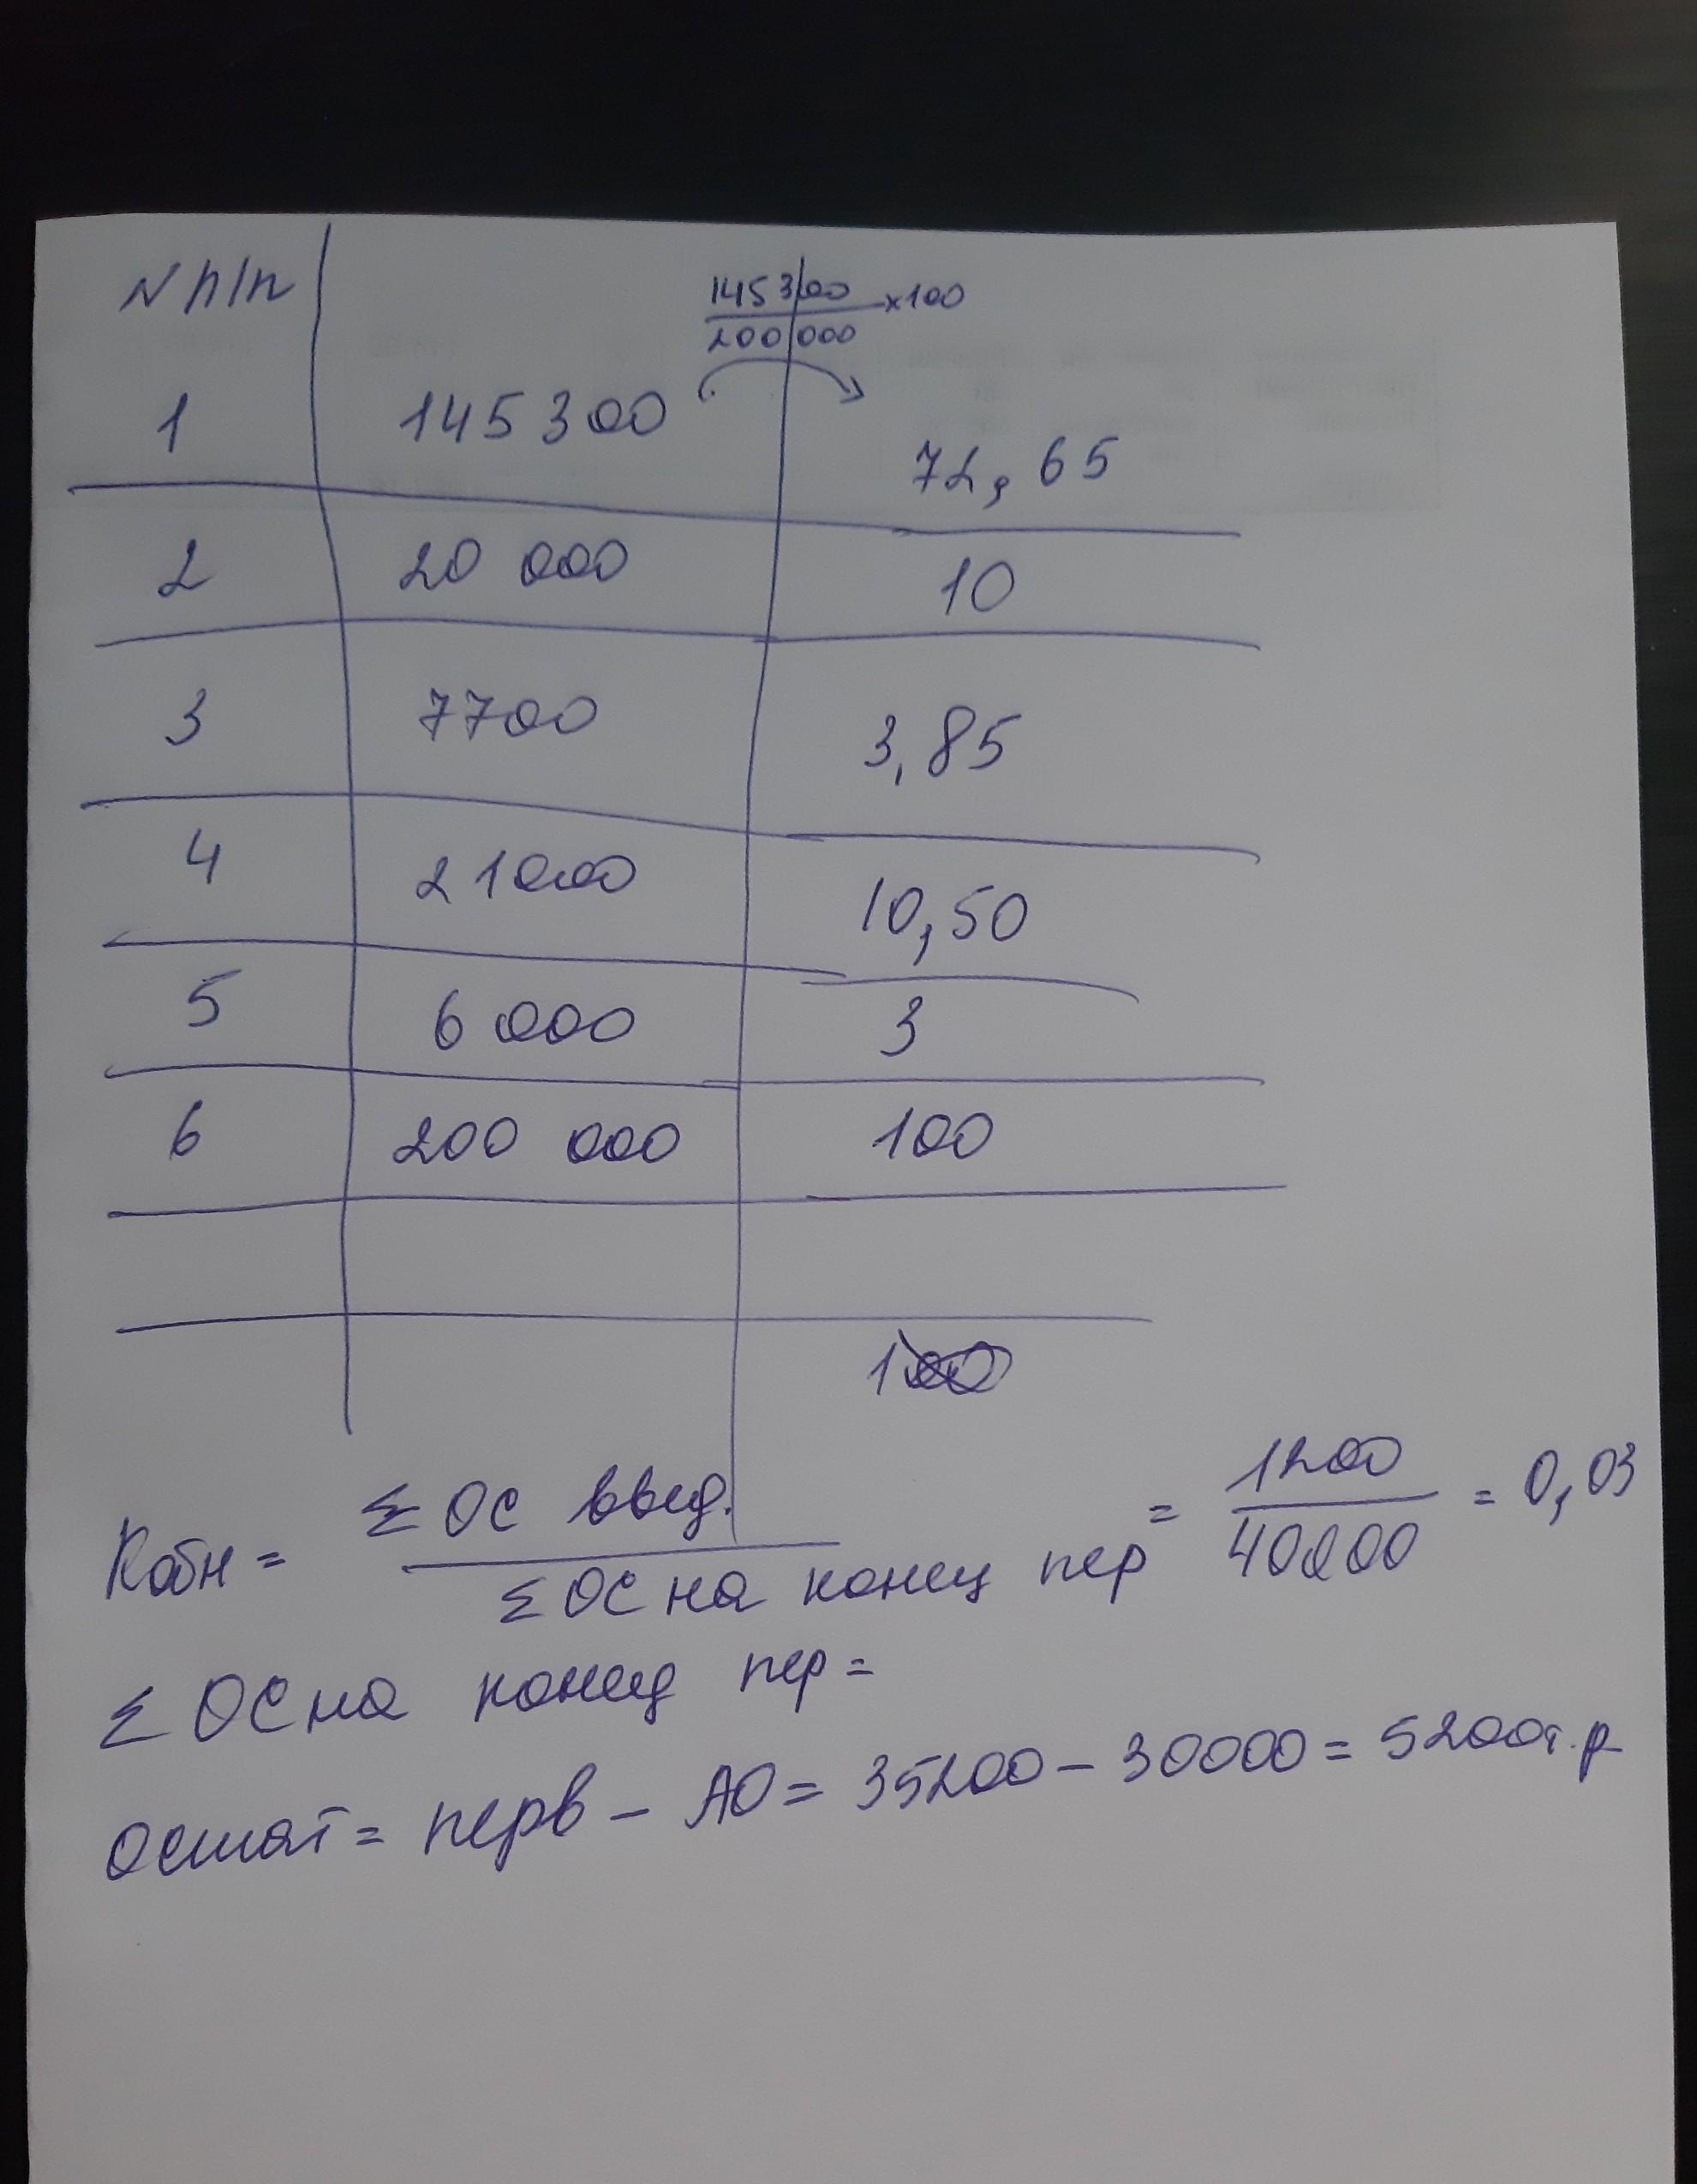 N п/п
145300 x100
200 000
1 145 300 72,65
2 20 000 10
3 7700 3,85
4 21000 10,50
5 6 000 3
6 200 000 100
100
Кобн = Σ ОС введ. / Σ ОС на конец пер = 1200 / 40000 = 0,03
Σ ОС на конец пер =
Остат = перв – АО = 35200 – 30000 = 5200т.р